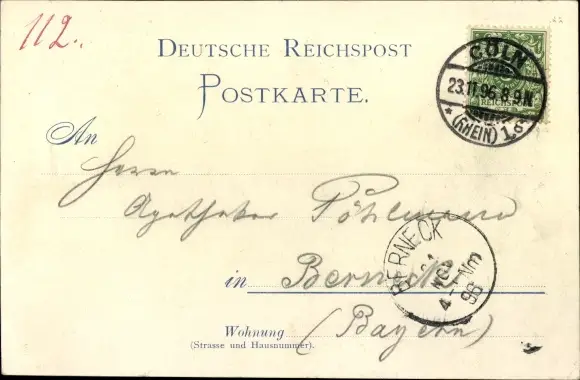 112.
DEUTSCHE REICHSPOST
POSTKARTE.
CÖLN
23.11.96.8-9N.
* (RHEIN) 1
REICHSPOST
An
Herrn
Apotheker Pöhlmann
in Berneck
BERNECK
24
NOV
4-5Nm
96
Wohnung (Bayern)
(Strasse und Hausnummer).